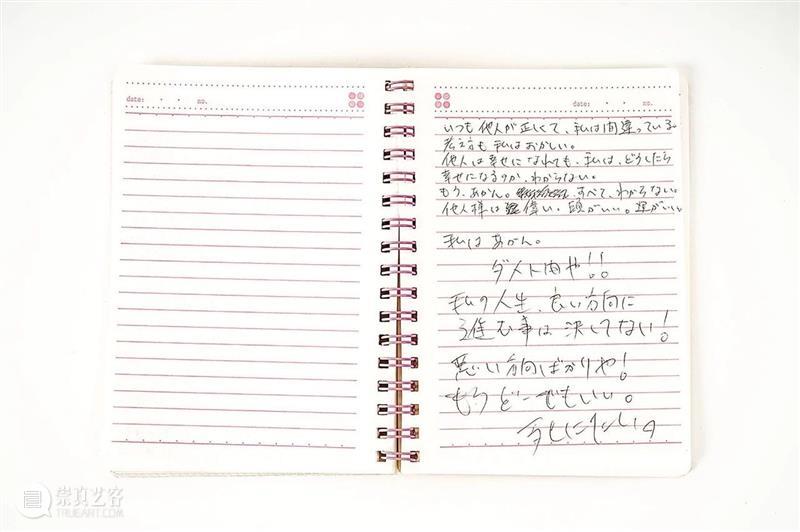 date: ・ ・ no.
date: ・ ・ no.
いつも他人が正しくて、私は間違っている。
考え方も私はおかしい。
他人は幸せになれても、私は、どうしたら
幸せになるのか、わからない。
もう、あかん。すべて、わからない。
他人様は偉い。頭がいい。運がいい。
私はあかん。
ダメト肉や!!
私の人生、良い方向に
進む事は決してない!
悪い方向ばかりや!
もうどーでもいい。
死にたい。
崇真艺客
TRUEART.COM